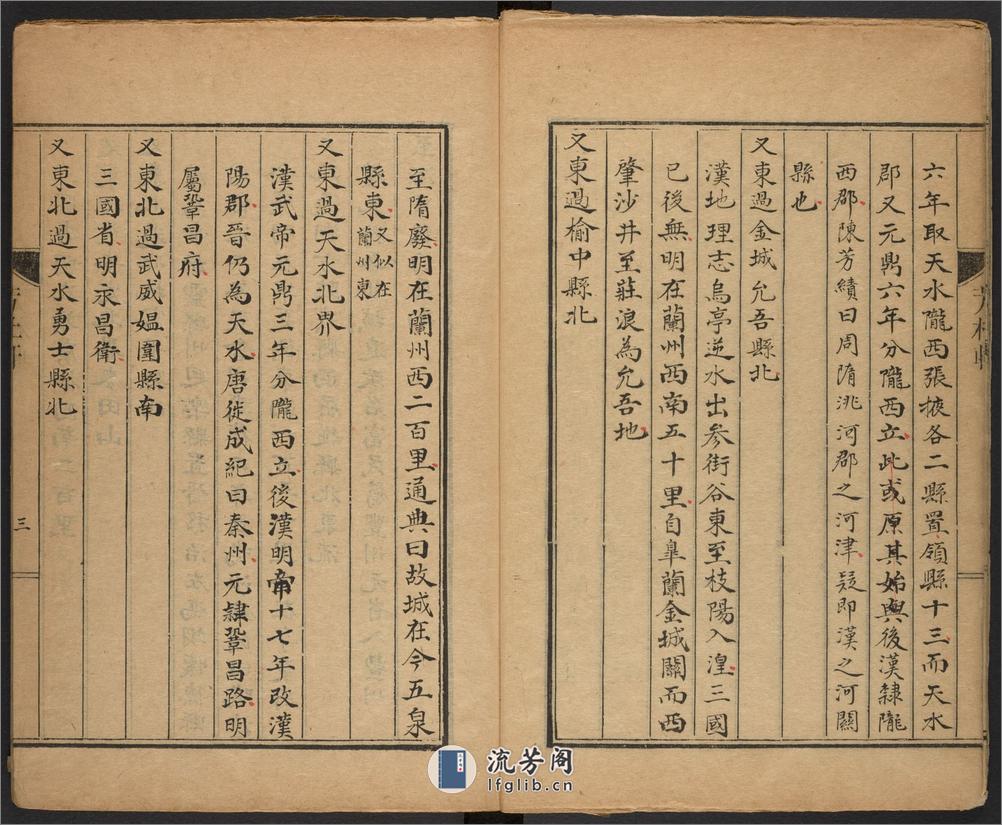 六年取天水隴西張掖各二縣置領縣十三而天水
郡又元鼎六年分隴西立此或原其始與後漢隸隴
西郡陳芳績曰周隋洮河郡之河津疑即漢之河關
縣也
又東過金城允吾縣北
漢地理志烏亭逆水出參街谷東至枝陽入湟三國
已後無明在蘭州西南五十里自臯蘭金城關而西
肇沙井至莊浪為允吾地
又東過榆中縣北
至隋廢明在蘭州西二百里通典曰故城在今五泉
縣東又似在蘭州東
又東過天水北界
漢武帝元鼎三年分隴西立後漢明帝十七年改漢
陽郡晉仍為天水唐徙成紀曰秦州元隸鞏昌路明
屬鞏昌府
又東北過武威媼圍縣南
三國省明永昌衛
又東北過天水勇士縣北
三
流芳阁
lfglib.cn